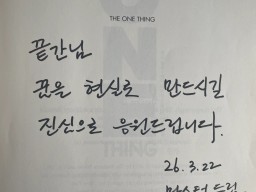 THE ONE THING
끝간님
꿈을 현실로 만드시길
진심으로 응원드립니다.
THING
26.3.22
드림.